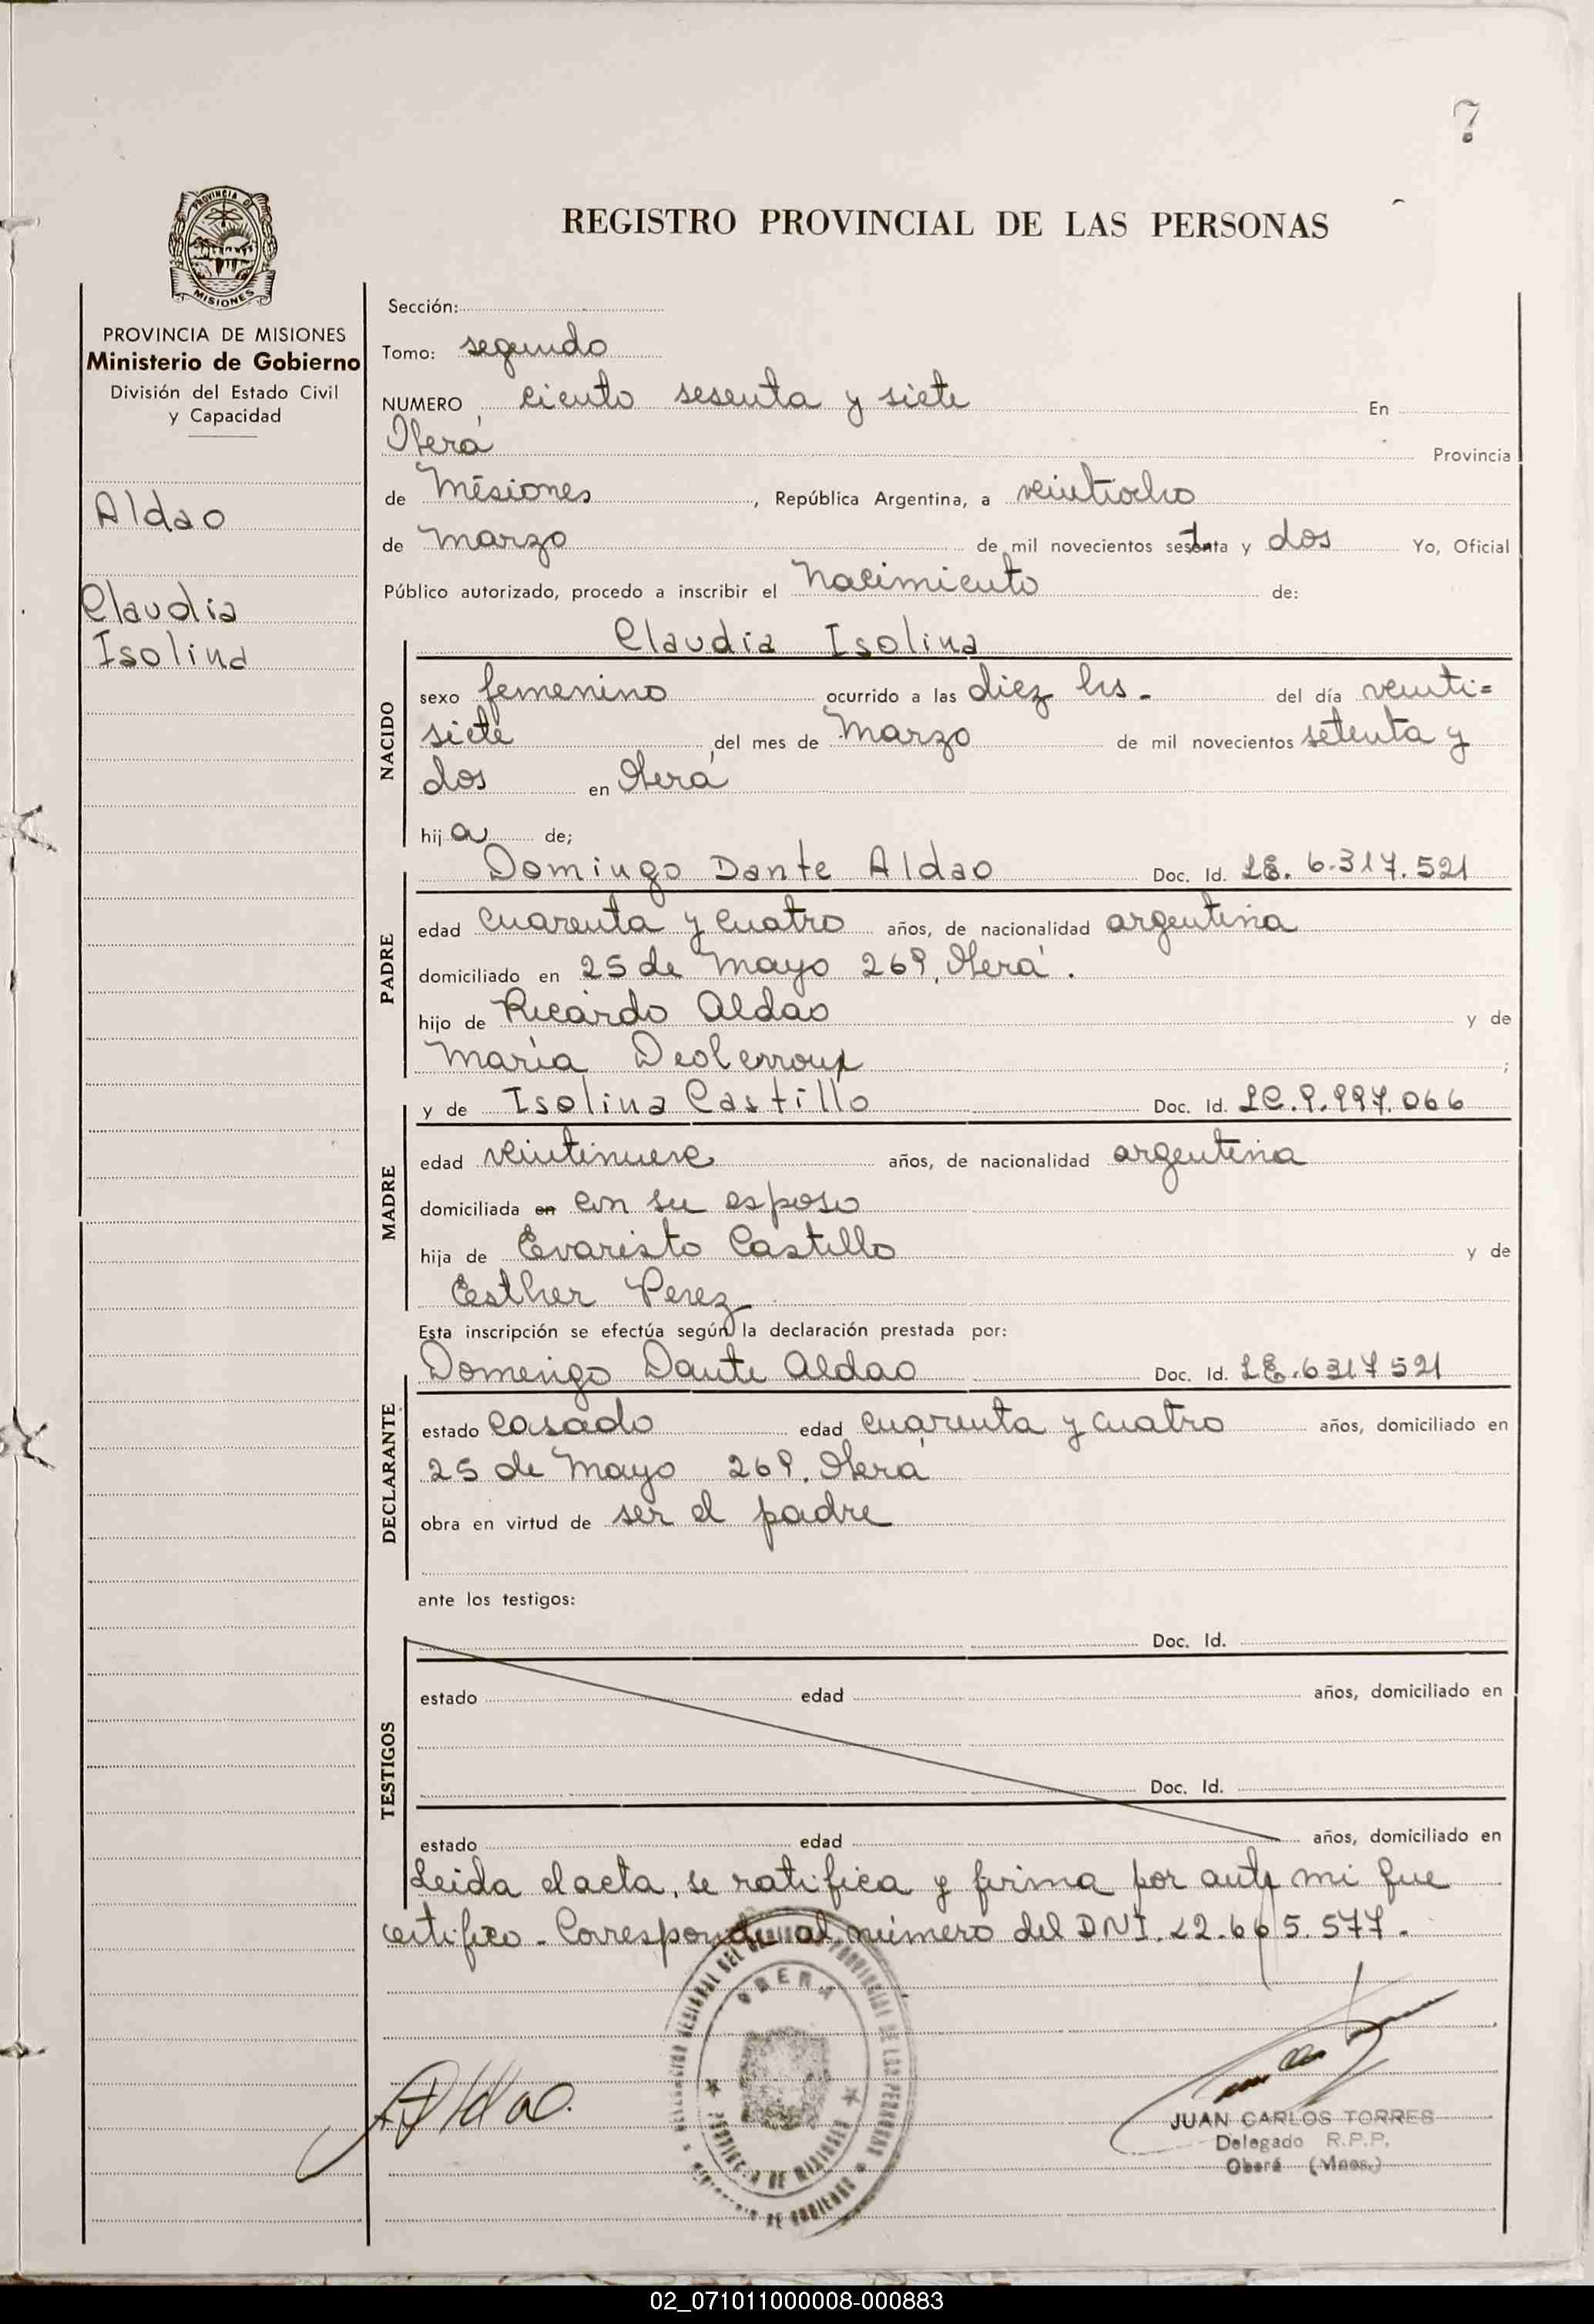 7
PROVINCIA DE
MISIONES
PROVINCIA DE MISIONES
Ministerio de Gobierno
División del Estado Civil
y Capacidad
Aldao
Claudia
Isolina
REGISTRO PROVINCIAL DE LAS PERSONAS
Sección:
Tomo: segundo
NUMERO ciento sesenta y siete En
Oberá Provincia
de Misiones, República Argentina, a veintiocho
de Marzo de mil novecientos setenta y dos Yo, Oficial
Público autorizado, procedo a inscribir el Nacimiento de:
Claudia Isolina
NACIDO
sexo femenino ocurrido a las diez hs- del día veinti=
siete del mes de Marzo de mil novecientos setenta y
dos en Oberá
hija de;
PADRE
Domingo Dante Aldao Doc. Id. LE. 6.317.521
edad cuarenta y cuatro años, de nacionalidad argentina
domiciliado en 25 de Mayo 269, Oberá.
hijo de Ricardo Aldao y de
María ;
MADRE
y de Isolina Castillo Doc. Id. LC. 9.997.066
edad veintinueve años, de nacionalidad argentina
domiciliada en con su esposo
hija de Evaristo Castillo y de
Esther Perez
Esta inscripción se efectúa según la declaración prestada por:
DECLARANTE
Domingo Dante Aldao Doc. Id. LE.6317521
estado casado edad cuarenta y cuatro años, domiciliado en
25 de Mayo 269. Oberá
obra en virtud de ser el padre
ante los testigos:
TESTIGOS
Doc. Id.
estado edad años, domiciliado en
Doc. Id.
estado edad años, domiciliado en
Leida el acta, se ratifica y firma por ante mi que
certifico - Corresponde al número del DNI. 22.665.577-
OBERA
PROVINCIA DE MISIONES
Aldao.
JUAN CARLOS TORRES
Delegado R.P.P.
Oberá (Mnes.)
02_071011000008-000883